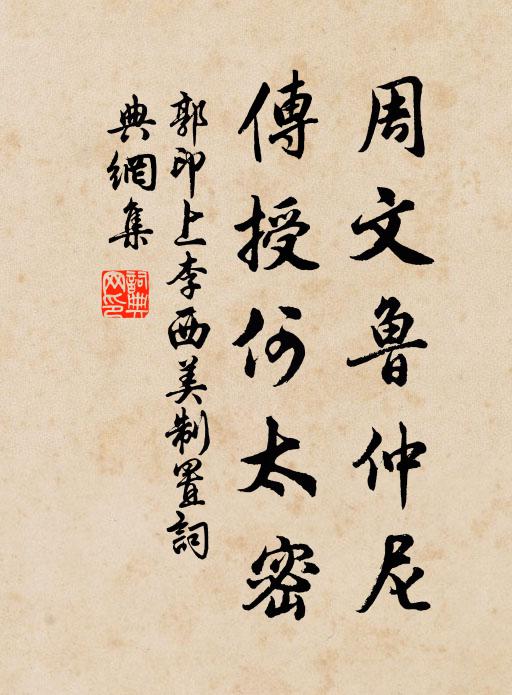 周文魯仲尼
傳授何太密
郭印上李西美制置詞
典網集
詞典网印